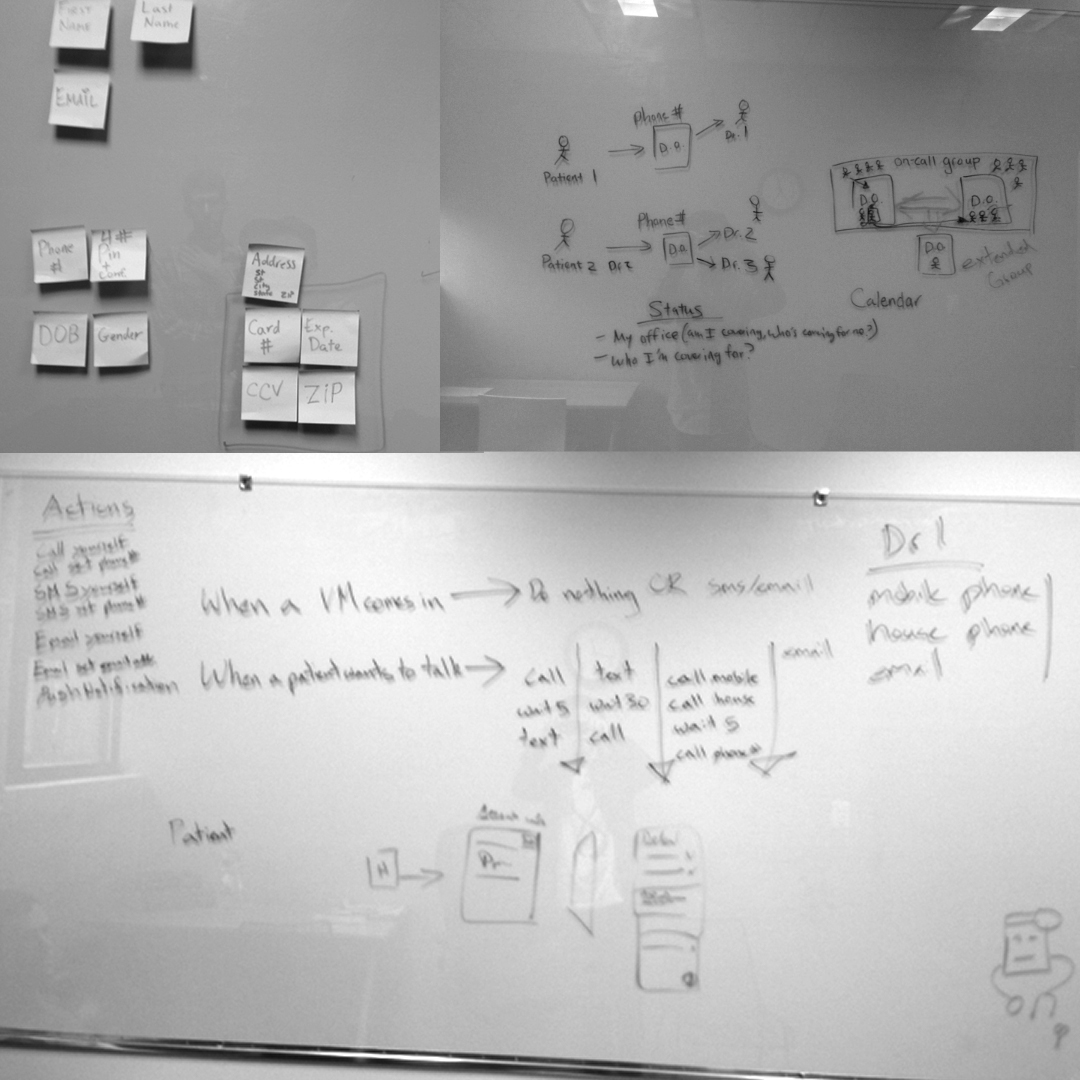 First
Name
Last
Name
EMAIL
Phone
#
4#
Pin
+
conf
DOB
Gender
Address
City
State ZIP
Card
#
Exp.
Date
CCV
ZIP
Phone #
D.O.
Dr. 1
Patient 1
Phone #
D.O.
Dr. 2
Dr. 3
Patient 2
on-call group
D.O.
D.O.
D.O.
extended
Group
Calendar
Status
- My office (am I covering, who's covering for me?)
- Who I'm covering for?
Actions
Call yourself
Call set phone #
SMS yourself
SMS set phone #
Email yourself
Push Notification
When a VM comes in
Do nothing OR sms/email
When a patient wants to talk
call
wait 5
text
text
wait 30
call
call mobile
call house
wait 5
call phone #
email
Dr 1
mobile phone
house phone
email
Patient
N
Dr